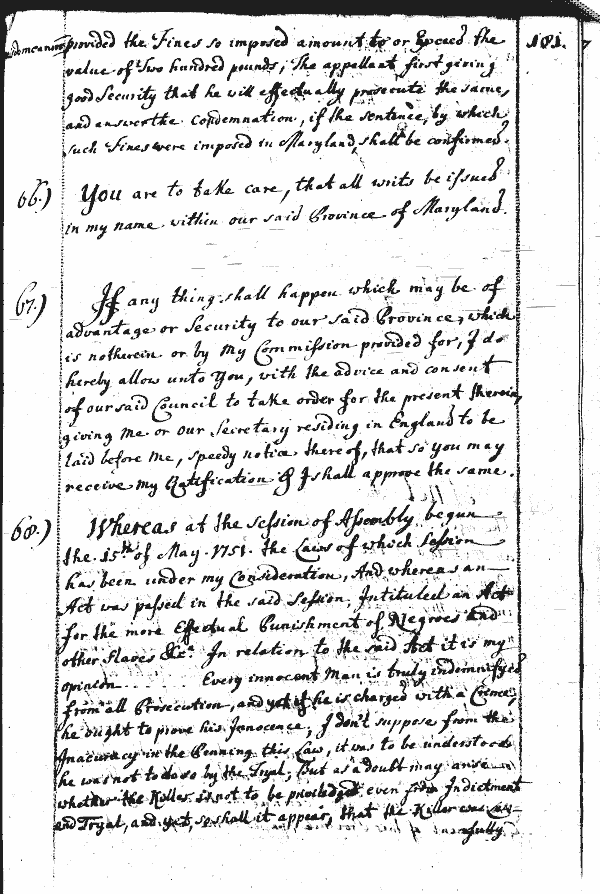 181.
provided the Fines so imposed amount to or Exceed the
value of Two hundred pounds, The appellant first giving
good Security that he will effectually prosecute the same,
and answer the Condemnation, if the sentence, by which
such Fines were imposed in Maryland, shall be confirmed.
66.) You are to take care, that all writs be issued
in my name within our said Province of Maryland.
67.) If any thing shall happen which may be of
advantage or Security to our said Province, which
is not herein or by my Commission provided for, I do
hereby allow unto You, with the advice and consent
of our said Council to take order for the present therein,
giving me or our Secretary residing in England to be
laid before me, speedy notice thereof, that so you may
receive my Ratification if I shall approve the same.
68.) Whereas at the session of Assembly begun
the 15th of May 1751. the Laws of which Session
has been under my Consideration, And whereas an
Act was passed in the said Session, Intituled an Act
for the more Effectual Punishment of Negroes and
other Slaves &ca. In relation to the said Act it is my
opinion ..... Every innocent Man is truly indemnifyed
from all Prosecution, and yet if he is charged with a Crime,
he ought to prove his Innocence, I don't suppose from the
Inacuracy in the Penning this Law, it was to be understood
he was not to do so by the Tryal, But as a doubt may arise
whether the Killer is not to be priviledged even from Indictment
and Tryal, and yet, so shall it appear, that the Killer was